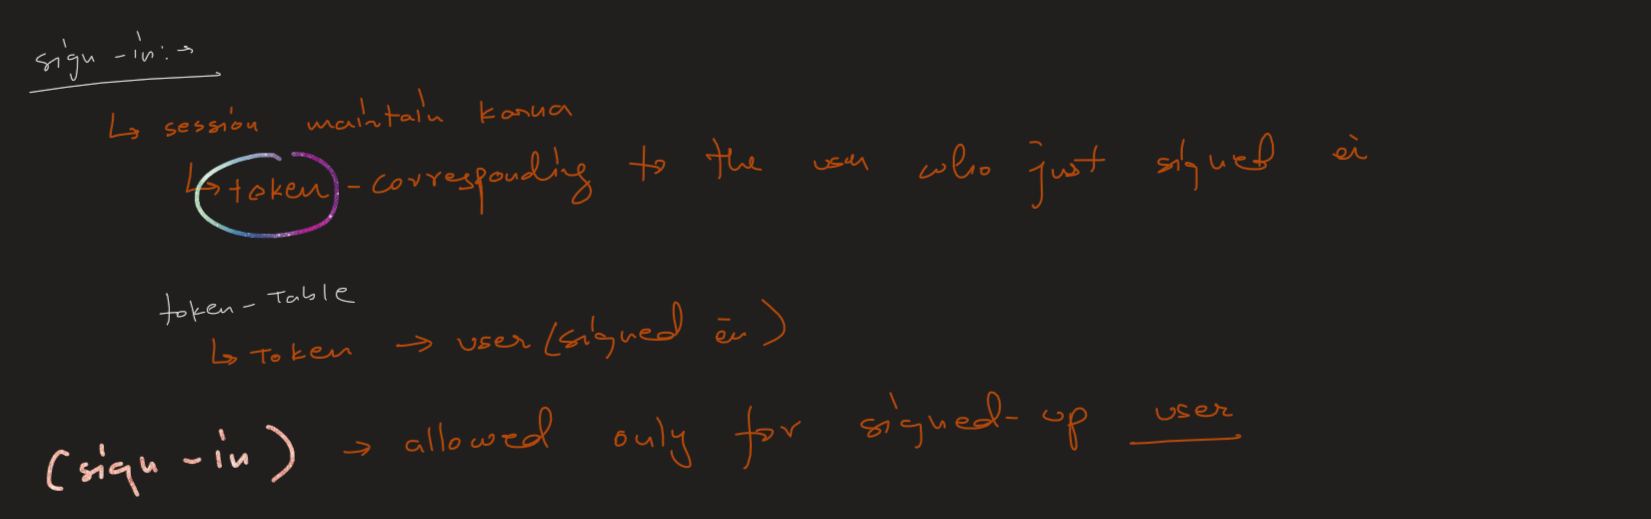 sign-in:→
↳ session maintain karna
↳ token - corresponding to the user who just signed in
token-Table
↳ Token → user (signed in)
(sign-in) → allowed only for signed-up user